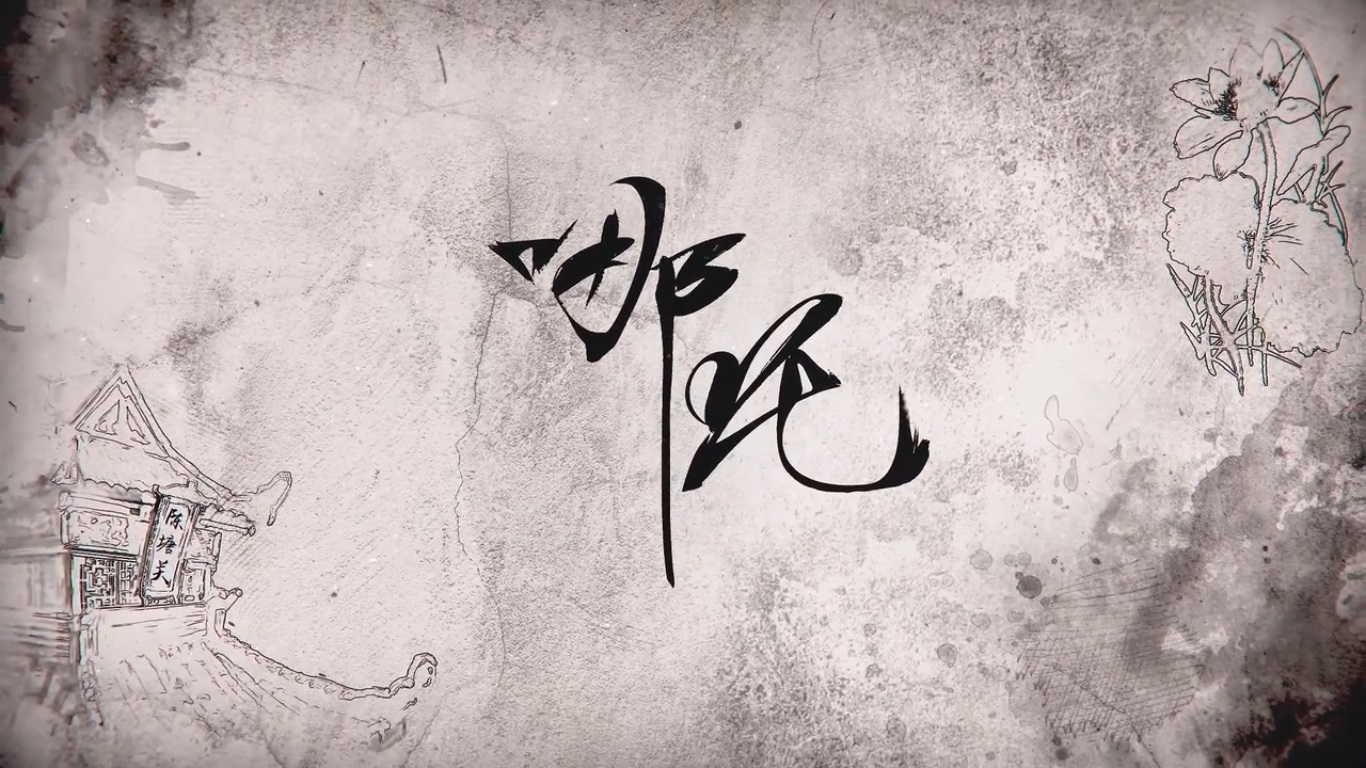 哪吒
陈塘关